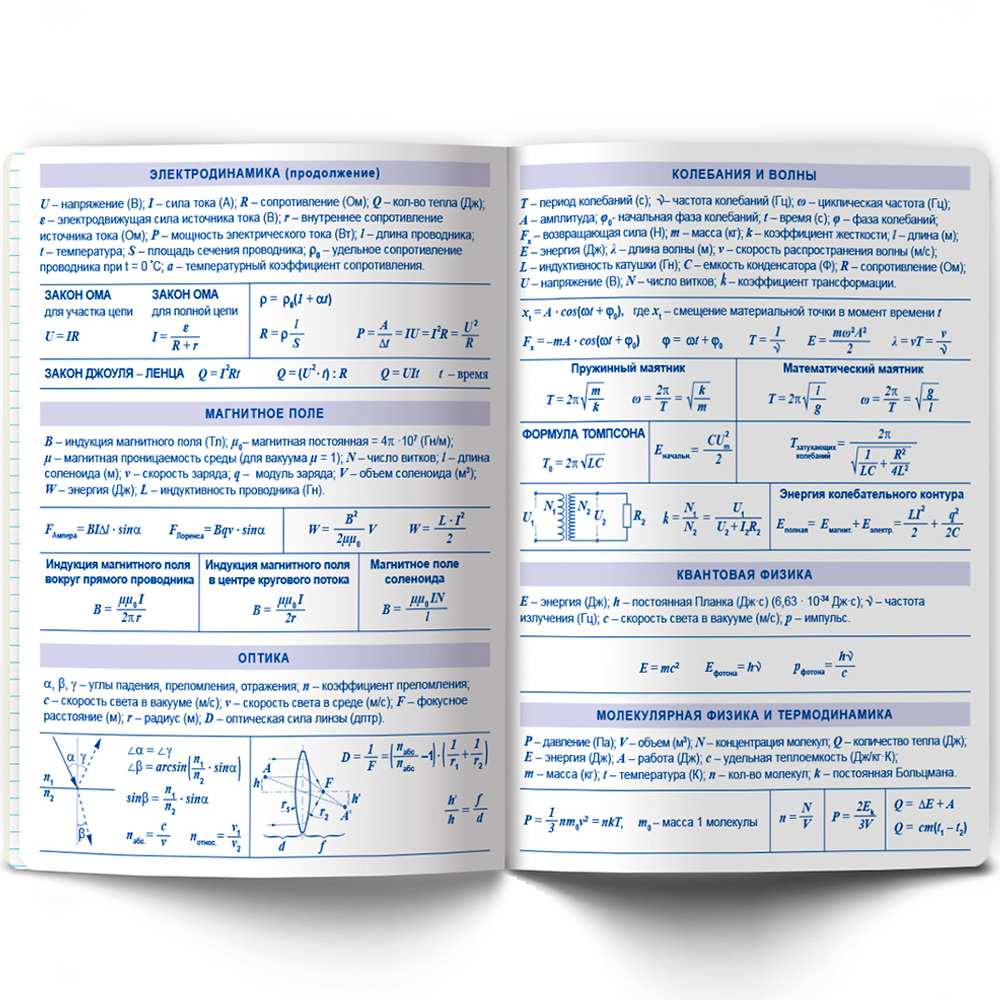 ЭЛЕКТРОДИНАМИКА (продолжение)
U – напряжение (В); I – сила тока (А); R – сопротивление (Ом); Q – кол-во тепла (Дж);
ε – электродвижущая сила источника тока (В); r – внутреннее сопротивление
источника тока (Ом); P – мощность электрического тока (Вт); l – длина проводника;
t – температура; S – площадь сечения проводника; ρ₀ – удельное сопротивление
проводника при t = 0 ˚С; a – температурный коэффициент сопротивления.
ЗАКОН ОМА
для участка цепи
U = IR
ЗАКОН ОМА
для полной цепи
I = ε / (R + r)
ρ = ρ₀(1 + αt)
R = ρ l/S
P = A/Δt = IU = I²R = U²/R
ЗАКОН ДЖОУЛЯ – ЛЕНЦА Q = I²Rt Q = (U² · t) : R Q = UIt t – время
МАГНИТНОЕ ПОЛЕ
B – индукция магнитного поля (Тл); μ₀ – магнитная постоянная = 4π ·10⁷ (Гн/м);
μ – магнитная проницаемость среды (для вакуума μ = 1); N – число витков; l – длина
соленоида (м); v – скорость заряда; q – модуль заряда; V – объем соленоида (м³);
W – энергия (Дж); L – индуктивность проводника (Гн).
FАмпера = BIΔl · sinα FЛоренса = Bqv · sinα W = B²/2μμ₀ V W = L · I²/2
Индукция магнитного поля
вокруг прямого проводника
B = μμ₀I/2πr
Индукция магнитного поля
в центре кругового потока
B = μμ₀I/2r
Магнитное поле
соленоида
B = μμ₀IN/l
ОПТИКА
α, β, γ – углы падения, преломления, отражения; n – коэффициент преломления;
c – скорость света в вакууме (м/с); v – скорость света в среде (м/с); F – фокусное
расстояние (м); r – радиус (м); D – оптическая сила линзы (дптр).
α γ
n₁
n₂
β
∠α = ∠γ
∠β = arcsin(n₁/n₂ · sinα)
sinβ = n₁/n₂ · sinα
nабс. = c/v nотнос. = v₁/v₂
A
h
F
h'
r₁ r₂ A'
d f
D = 1/F = (nабс/nабс – 1) · (1/r₁ + 1/r₂)
h'/h = f/d
КОЛЕБАНИЯ И ВОЛНЫ
T – период колебаний (с); ν – частота колебаний (Гц); ω – циклическая частота (Гц);
A – амплитуда; φ₀- начальная фаза колебаний; t – время (с); φ – фаза колебаний;
Fₓ – возвращающая сила (Н); m – масса (кг); k – коэффициент жесткости; l – длина (м);
E – энергия (Дж); λ – длина волны (м); v – скорость распространения волны (м/с);
L – индуктивность катушки (Гн); C – емкость конденсатора (Ф); R – сопротивление (Ом);
U – напряжение (В); N – число витков; k – коэффициент трансформации.
xₜ = A · cos(ωt + φ₀), где xₜ – смещение материальной точки в момент времени t
Fₓ = –mA · cos(ωt + φ₀) φ = ωt + φ₀ T = 1/ν E = mω²A²/2 λ = vT = v/ν
Пружинный маятник
T = 2π√(m/k) ω = 2π/T = √(k/m)
Математический маятник
T = 2π√(l/g) ω = 2π/T = √(g/l)
ФОРМУЛА ТОМПСОНА
T₀ = 2π√LC
Eначальн. = CUₘ²/2
Tзатухающих колебаний = 2π / √(1/LC + R²/4L²)
U₁ N₁ N₂ U₂ R₂
k = N₁/N₂ = U₁/(U₂ + I₂R₂)
Энергия колебательного контура
Eполная = Eмагнит. + Eэлектр. = LI²/2 + q²/2C
КВАНТОВАЯ ФИЗИКА
E – энергия (Дж); h – постоянная Планка (Дж·с) (6,63 · 10⁻³⁴ Дж·с); ν – частота
излучения (Гц); c – скорость света в вакууме (м/с); p – импульс.
E = mc² Eфотона = hν pфотона = hν/c
МОЛЕКУЛЯРНАЯ ФИЗИКА И ТЕРМОДИНАМИКА
P – давление (Па); V – объем (м³); N – концентрация молекул; Q – количество тепла (Дж);
E – энергия (Дж); A – работа (Дж); c – удельная теплоемкость (Дж/кг·К);
m – масса (кг); t – температура (К); n – кол-во молекул; k – постоянная Больцмана.
P = 1/3 nm₀v² = nkT, m₀ – масса 1 молекулы
n = N/V
P = 2Eₖ/3V
Q = ΔE + A
Q = cm(t₁ – t₂)